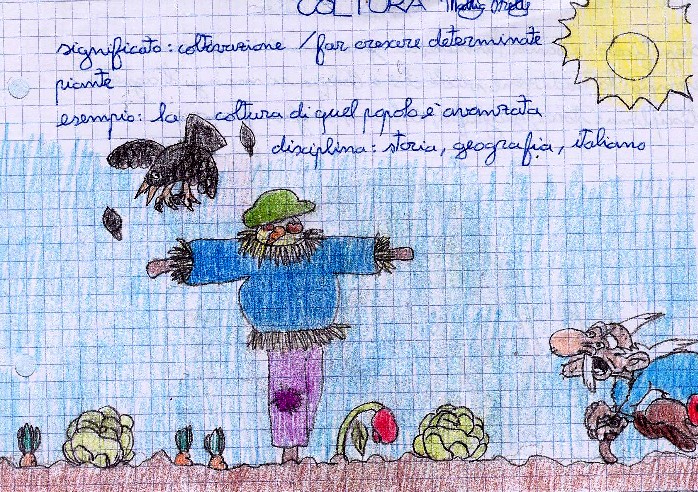 COLTURA
significato: coltivazione / far crescere determinate
piante
esempio: la coltura di quel popolo è avanzata
disciplina: storia, geografia, italiano